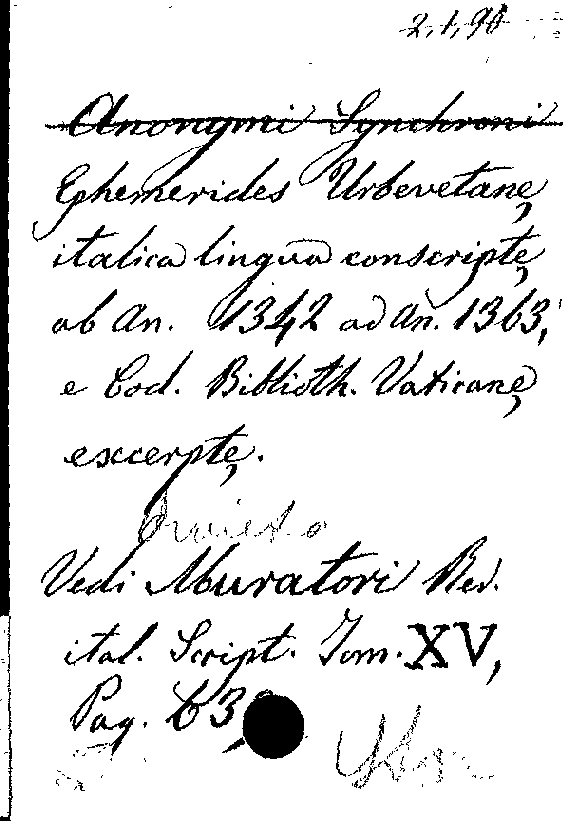 2,1,90
Anonymi Synchroni
Ephemerides Urbevetanę
italica lingua conscriptę
ab An. 1342 ad An. 1363,
e Cod. Biblioth. Vaticanę
excerptę.
Orvieto
Vedi Muratori Rer.
ital. Script. Tom. XV,
Pag. 63